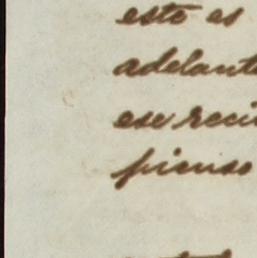 este es
adelante
ese reci
pienso